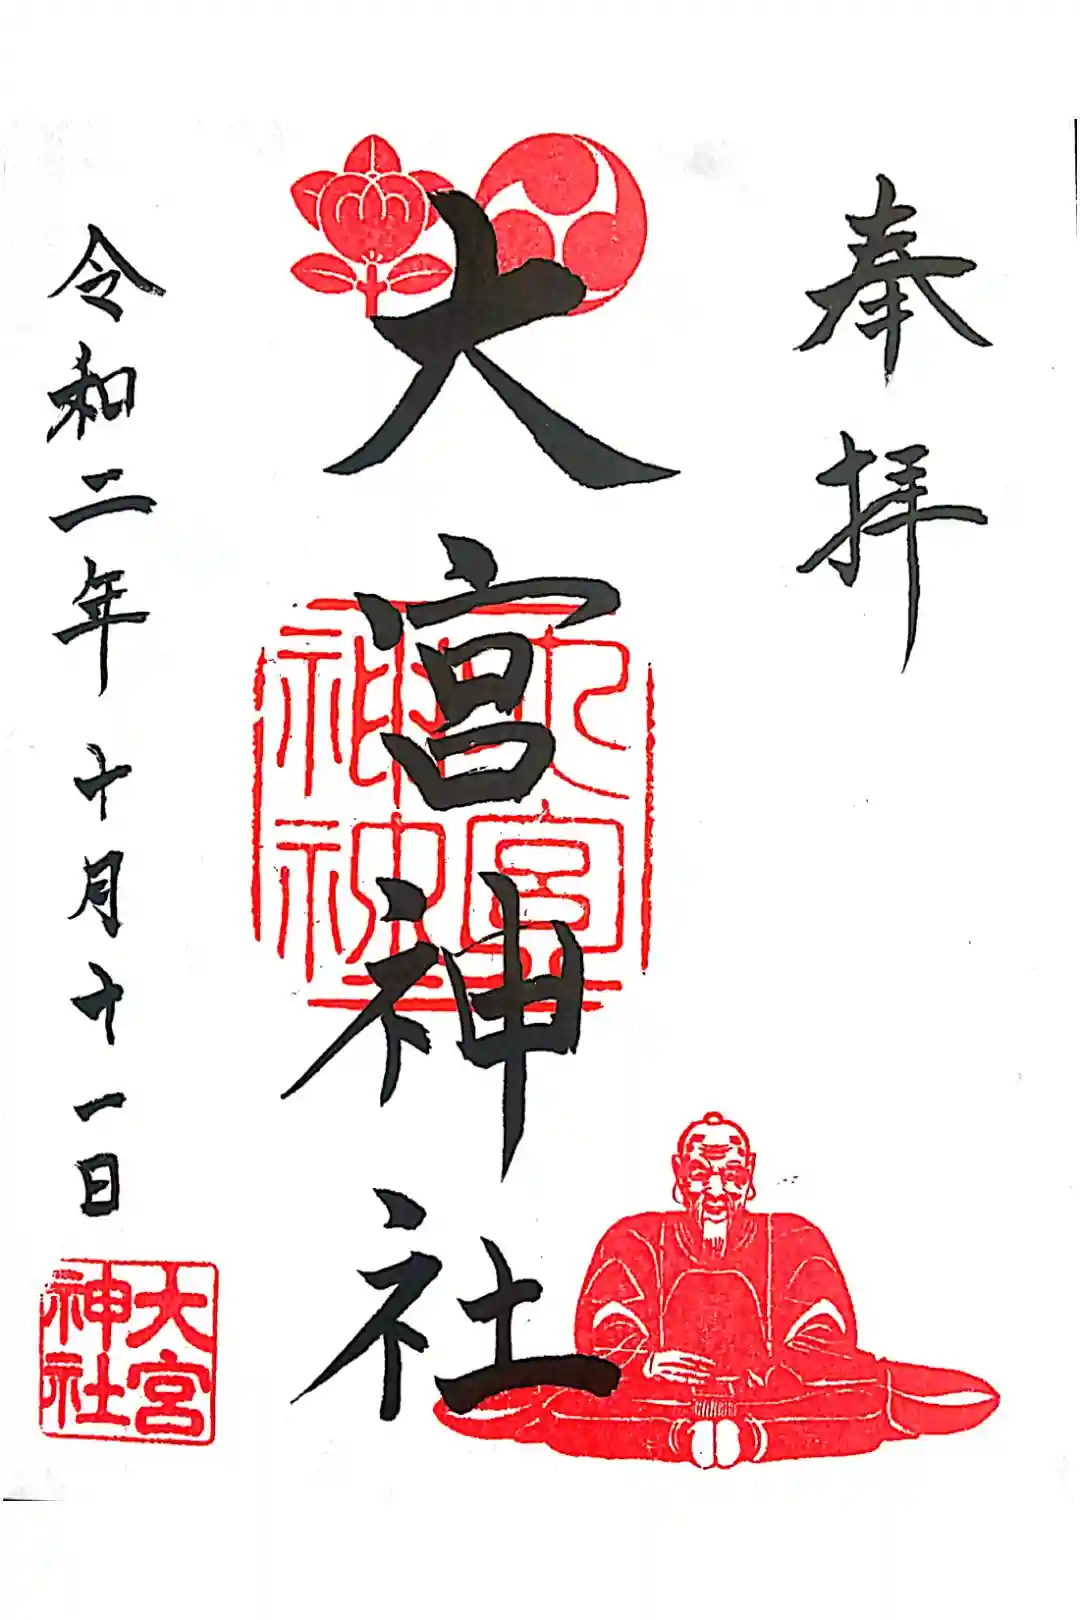 奉拝
大宮神社
大宮神社
令和二年十月十一日
大宮神社